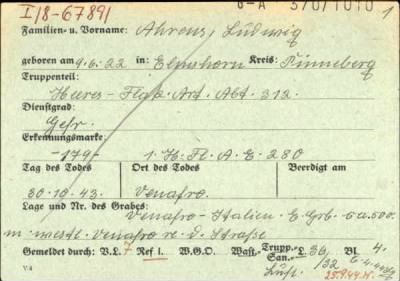 I/8-67891
6-A 370/1010 1
Familien- u. Vorname: Ahrens, Ludwig
geboren am 9.6.22 in: Elmshorn Kreis: Pinneberg
Truppenteil:
Heeres-Flak.Art.Abt. 312.
Dienstgrad:
Gefr.
Erkennungsmarke:
-179- 1. H. Fl. A. E. 280
Tag des Todes Ort des Todes Beerdigt am
30.10.43. Venafro.
Lage und Nr. des Grabes:
Venafro-Italien. E. Grb. ca. 500.
m westl. Venafro re. d. Straße
Gemeldet durch: V.L. 7 Ref 1. W.G.O. Wast. Trupp. San. L. 36 Bl. 4.
V/4